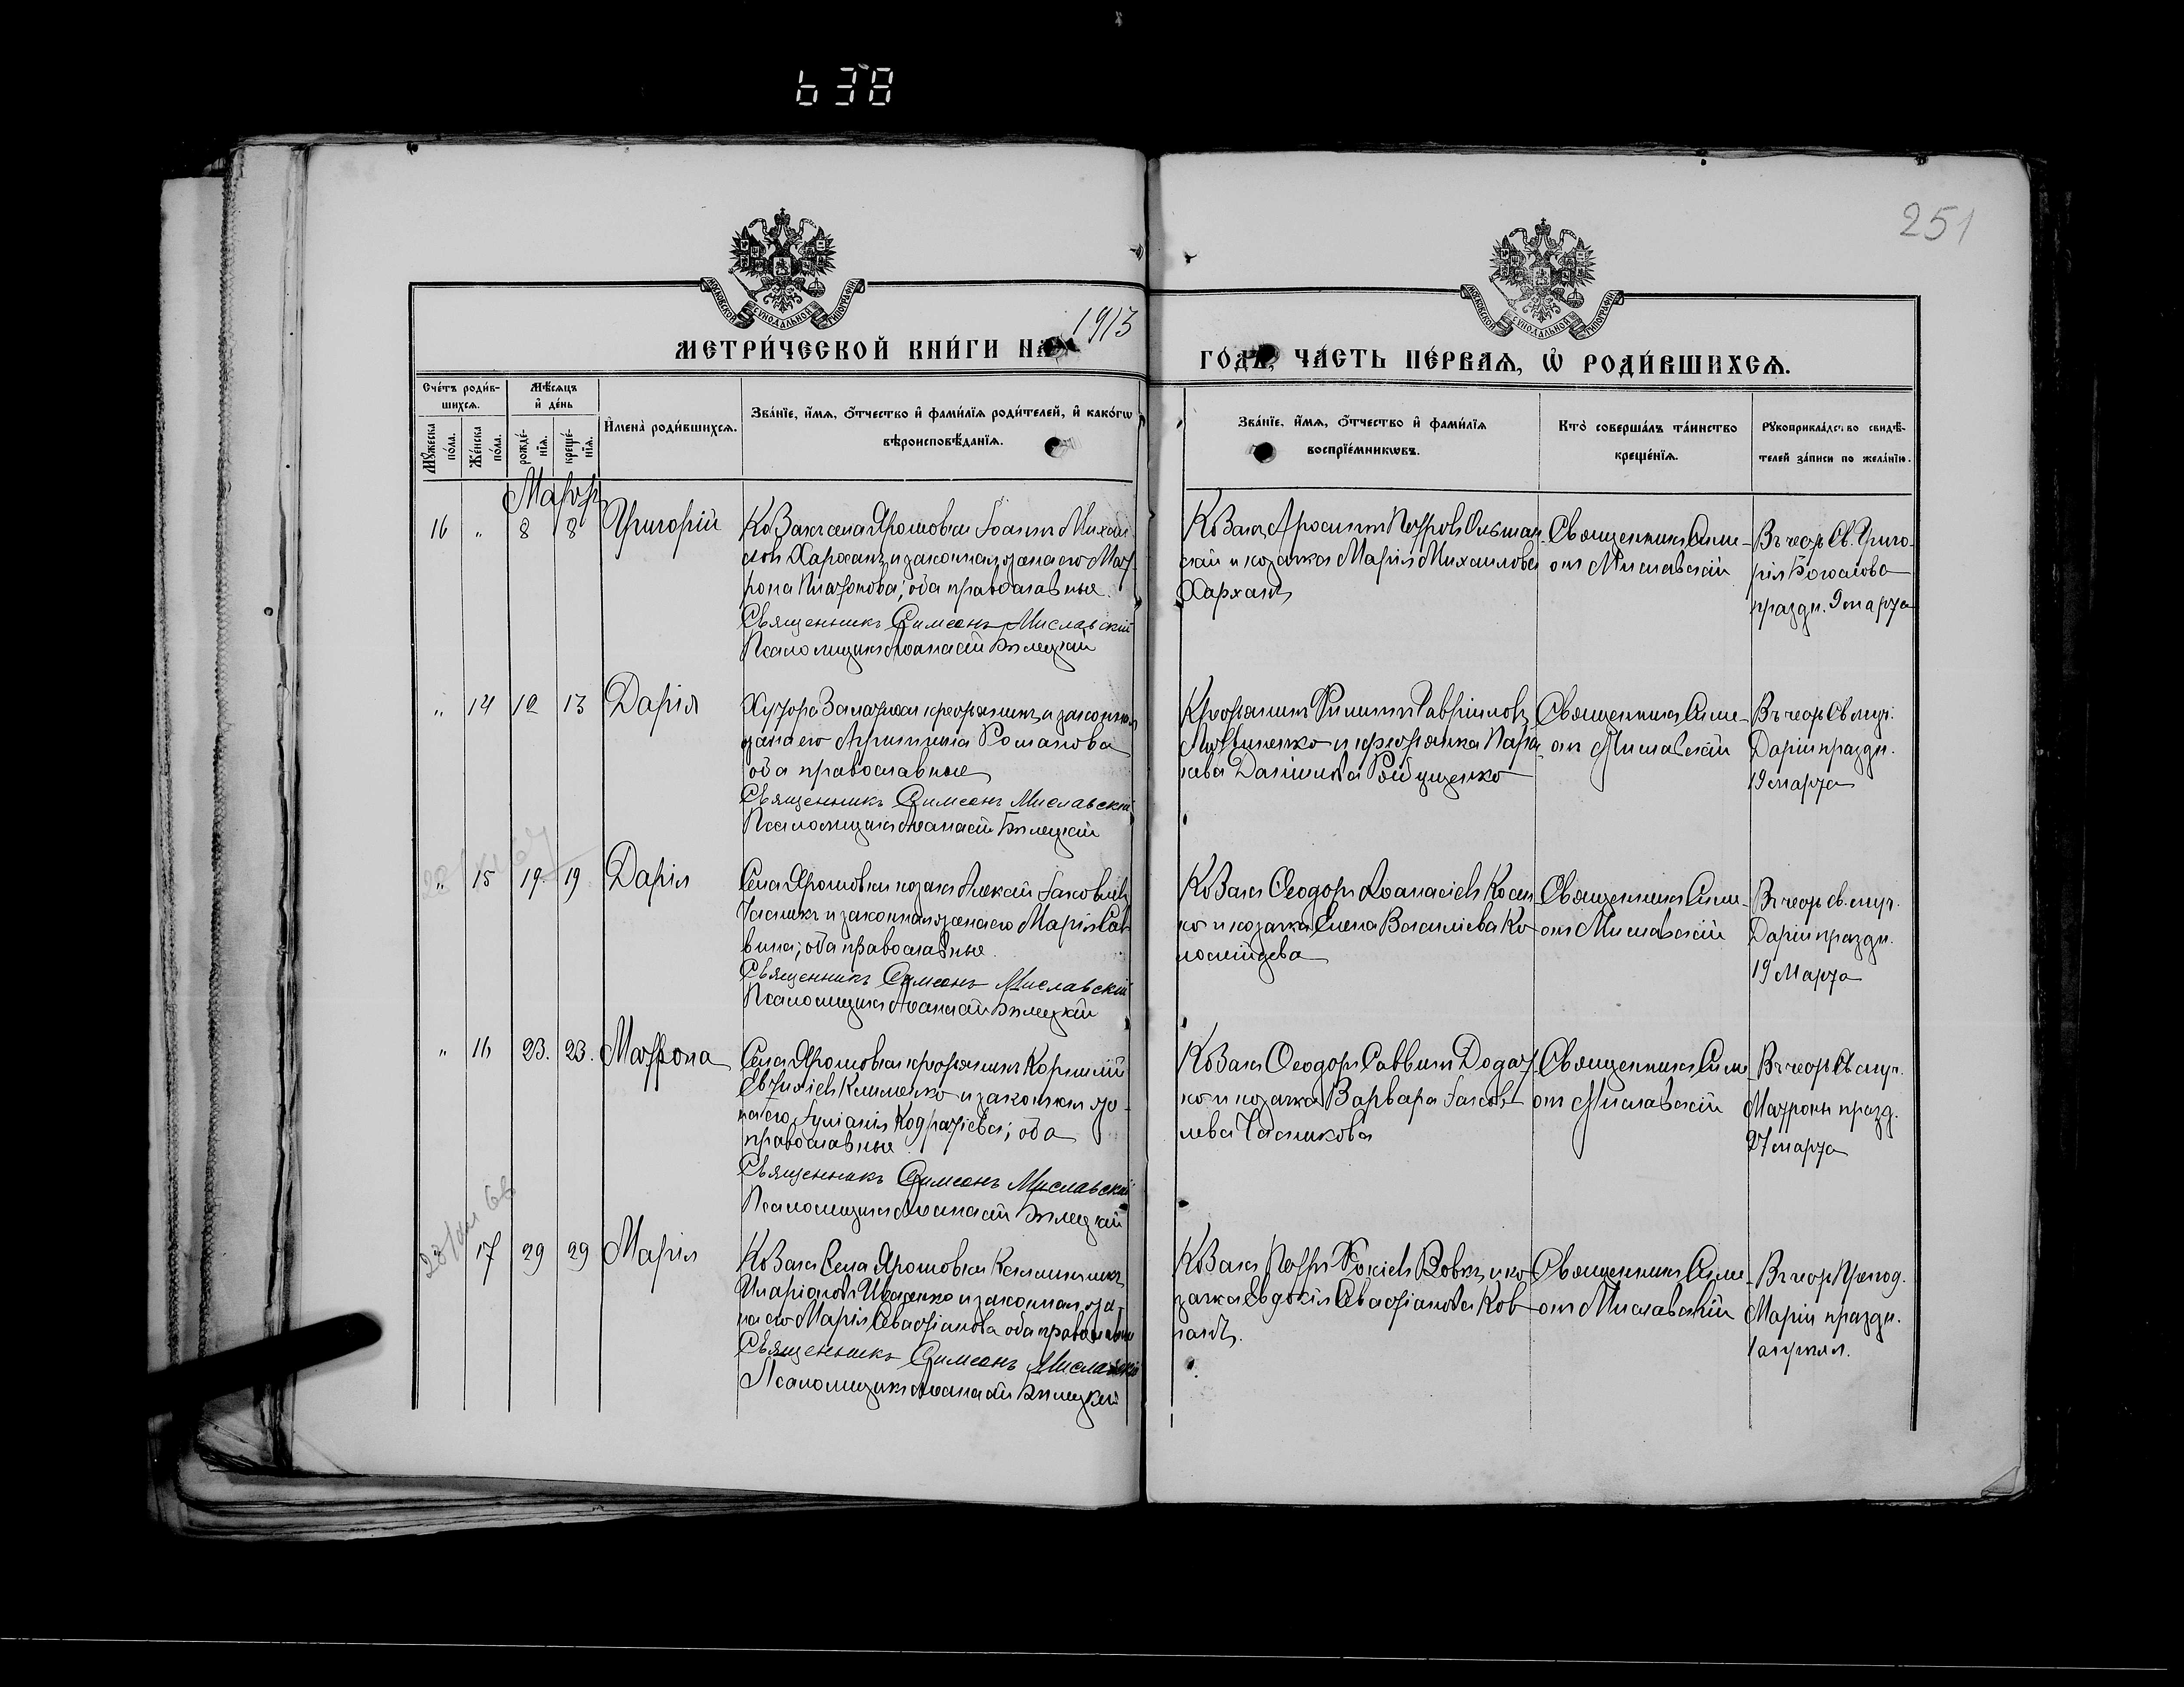 638
251
МОСКОВСКОЙ СУНОДАЛЬНОЙ ТИПОГРАФІИ
МОСКОВСКОЙ СУНОДАЛЬНОЙ ТИПОГРАФІИ
МЕТРИ́ЧЕСКОЙ КНИ́ГИ НА 1913
ГО́ДЪ, ЧА́СТЬ ПЕ́РВАЯ, Ѡ҆ РОДИ́ВШИХСЯ.
Сче́тъ роди́в-
шихся.
Мꙋ́жеска по́ла.
Же́нска по́ла.
Мѣ́сяцъ
и҆ де́нь
рожде́-
нїя.
креще́-
нїя.
И҆мена̀ роди́вшихся.
Зва́нїе, и҆́мя, ѻ҆́тчество и҆ фами́лїя роди́телей, и҆ како́гѡ
вѣроисповѣ́данїя.
Зва́нїе, и҆́мя, ѻ҆́тчество и҆ фами́лїя
воспрїе́мникѡвъ.
Кто̀ соверша́лъ та́инство
креще́нїя.
Рꙋкоприкла́дство свидѣ́-
телей за́писи по жела́нїю.
Мартъ
16 " 8 8 Григорій
Козакъ села Яромовки Іоаннъ Михаи-
ловъ Харханъ и законная жена его Мат-
рона Платонова; оба православные.
Священникъ Симеонъ Миславскій
Псаломщикъ Аѳанасій Билецкій
Козакъ Петровъ
и козачка Марія Михаилова
Харханъ
Священникъ Симе-
онъ Миславскій
Въ честь Св. Григо-
рія Богослова
праздн. марта
" 14 12 13 Дарія
Хутора крестьянинъ и законная
жена его Агриппина Романова
оба православные
Священникъ Симеонъ Миславскій
Псаломщикъ Аѳанасій Билецкій
Крестьянинъ Филиппъ Гавріиловъ
Литвиненко и крестьянка Парас-
кева
Священникъ Симе-
онъ Миславскій
Въ честь Св. муч.
Даріи праздн.
19 марта
" 15 19 19 Дарія
Села Яромовки козакъ Алексій Іаковлевъ
Чаеникъ и законная жена его Марія Сав-
вина; оба православные.
Священникъ Симеонъ Миславскій
Псаломщикъ Аѳанасій Билецкій
Козакъ Ѳеодоръ Аѳанасіевъ
и козачка Елена Василіева Ко-
Священникъ Симе-
онъ Миславскій
Въ честь св. муч.
Даріи праздн.
19 Марта
" 16 23. 23. Матрона
Села Яромовки крестьянинъ Корнилій
Евтихіевъ Клименко и законная же-
на его Іуліанія Кодратіева; оба
православные
Священникъ Симеонъ Миславскій
Псаломщикъ Аѳанасій Билецкій
Козакъ Ѳеодоръ Саввинъ
и козачка Варвара Іаков-
лева Чаеникова
Священникъ Симе-
онъ Миславскій
Въ честь Св. муч.
Матроны празд.
27 марта
17 29 29 Марія
Козакъ Села Яромовки
Иларіоновъ и законная же-
на его Марія Севастіанова оба православные
Священникъ Симеонъ Миславскій
Псаломщикъ Аѳанасій Билецкій
Козакъ Петръ Фокіевъ Вовкъ и ко-
зачка Евдокія Севастіанова
Священникъ Симе-
онъ Миславскій
Въ честь Препод.
Маріи праздн.
1 апрѣля.